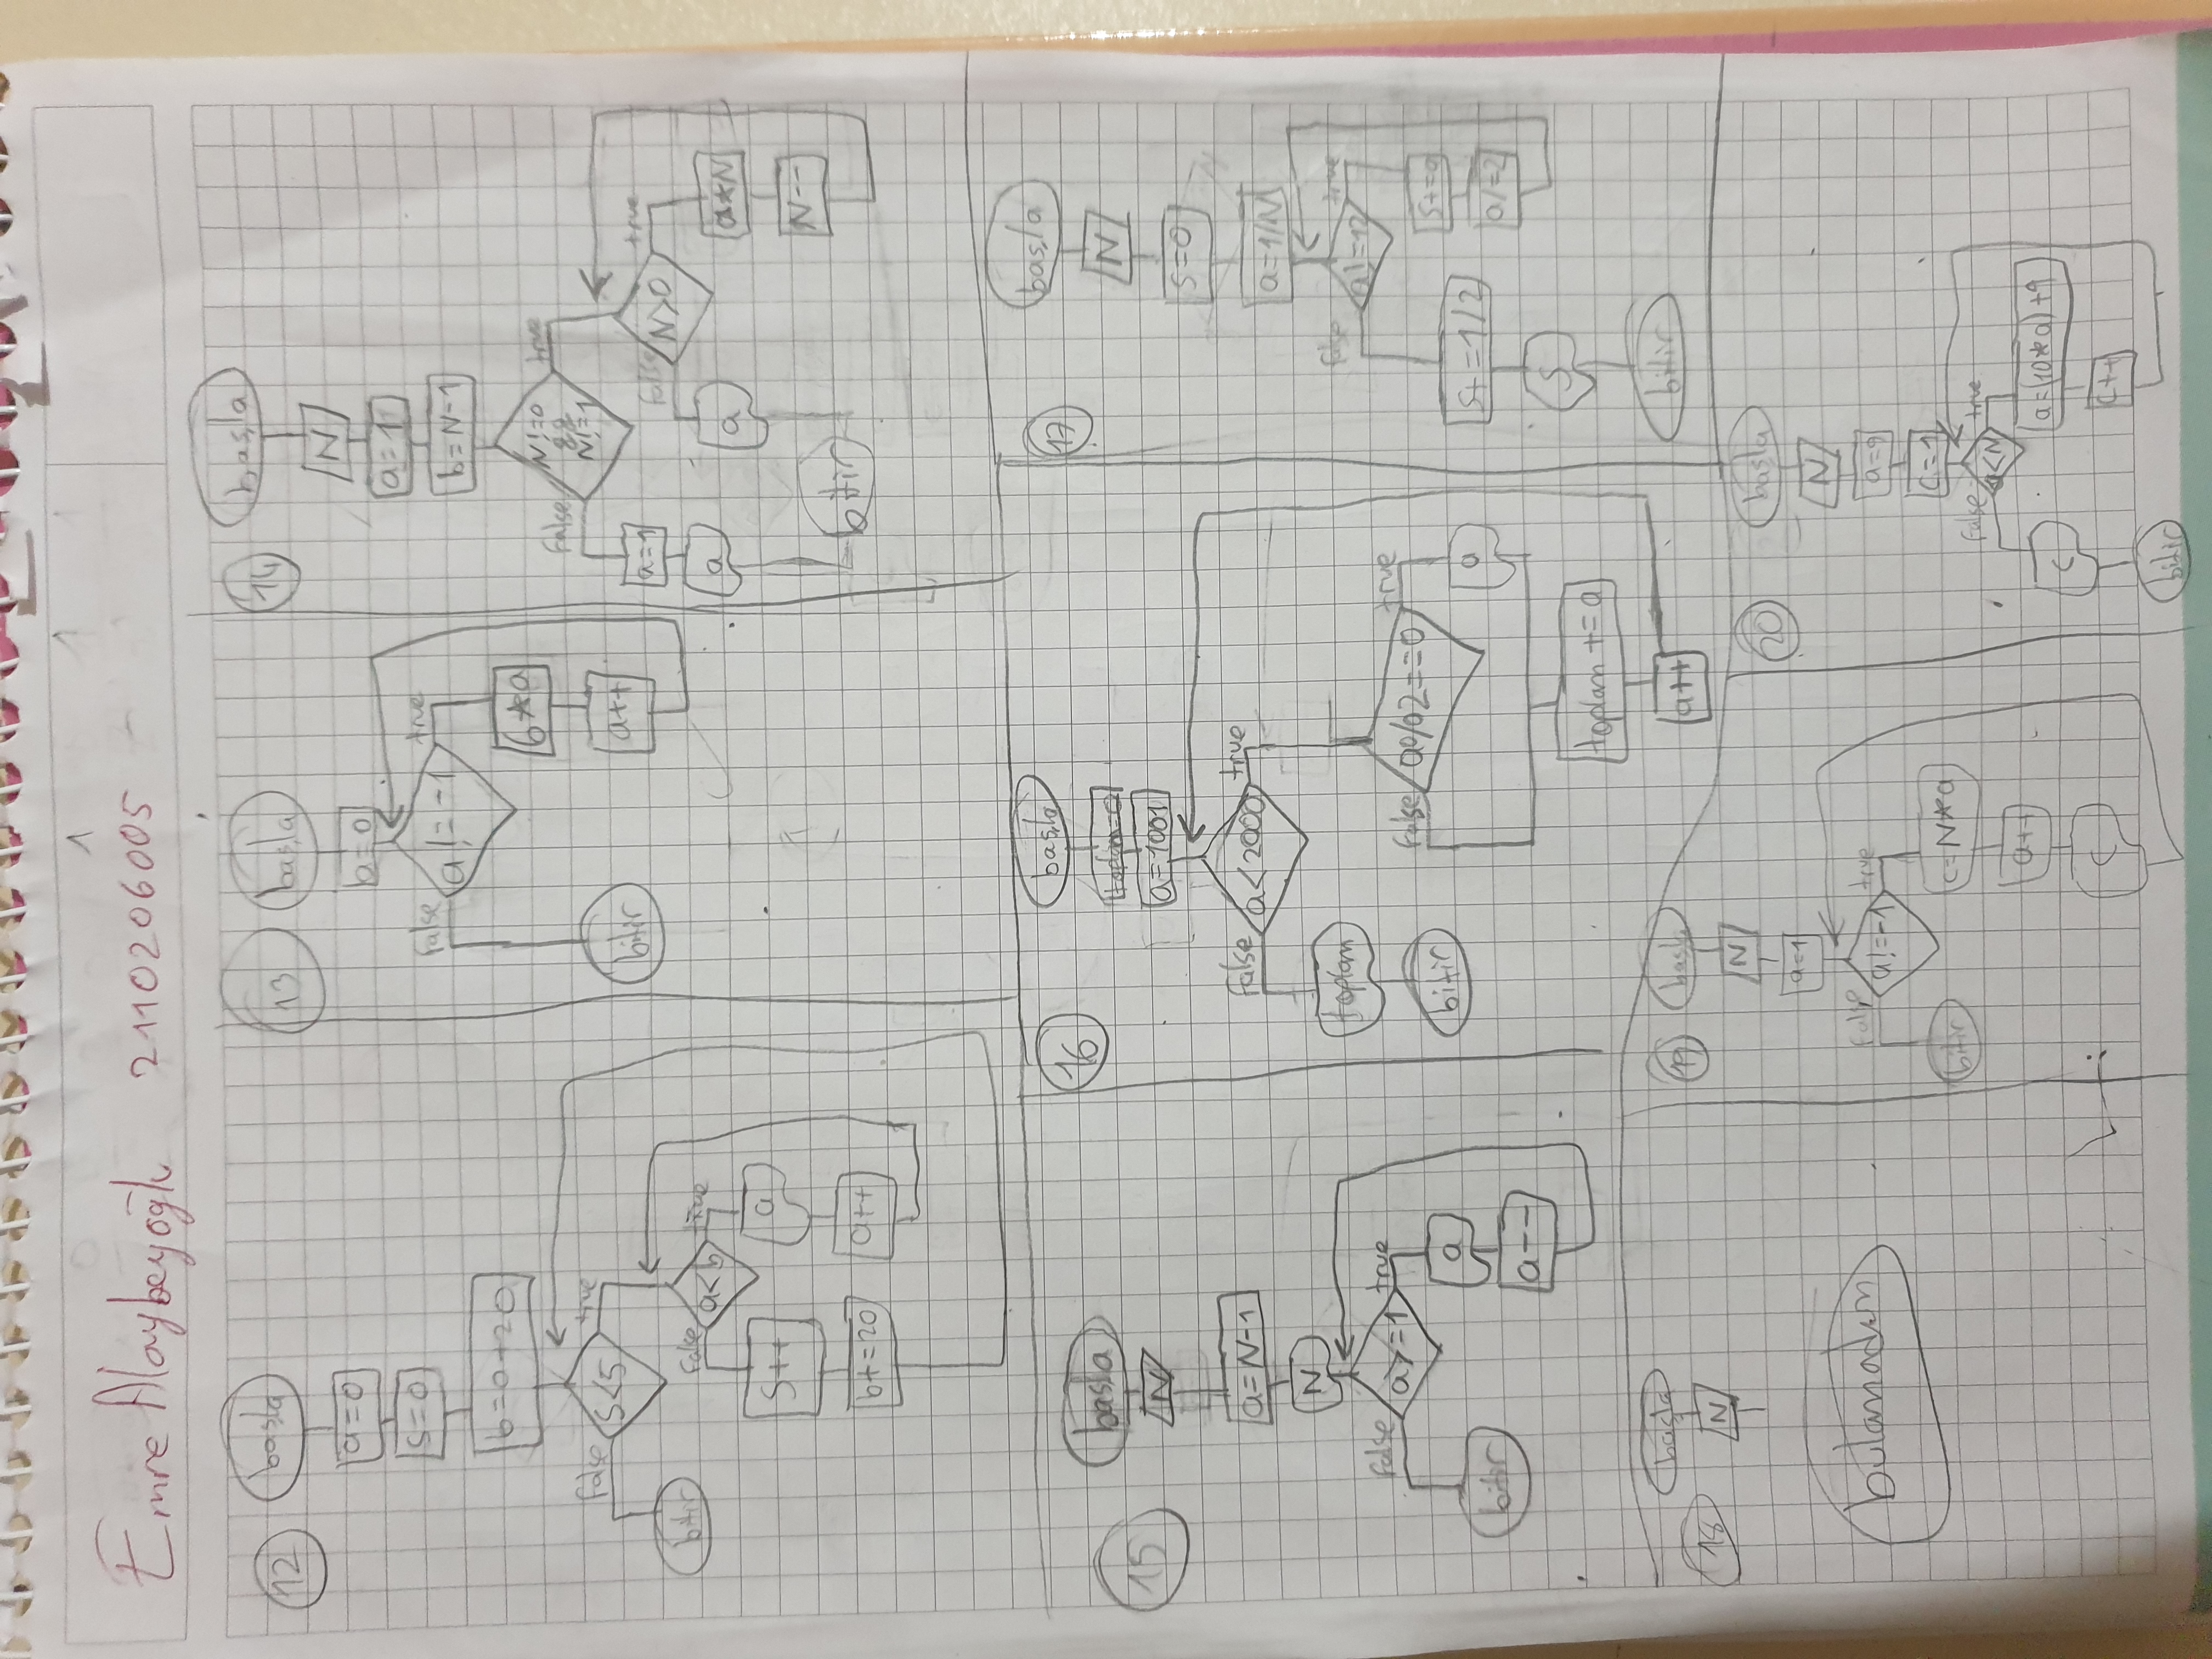 Emre Alaybeyoğlu 2110206005
12
başla
a=0
s=0
b=0+20
s<5
false
true
bitir
a<b
false
true
s++
a
b+=20
a++
13
başla
a=0
a!=-1
false
true
6*a
a++
bitir
14
başla
N
a=1
b=N-1
N!=0
&&
N!=1
false
true
a=1
a
N>0
false
true
a
a*N
N--
bitir
15
başla
N
a=N-1
N
a>=1
false
true
a
a--
bitir
16
başla
toplam=0
a=1001
a<2000
false
true
toplam
bitir
a%2==0
false
true
a
toplam+=a
a++
17
başla
N
s=0
a=1/N
a!=12
false
true
s+=a
a/=2
s+=1/2
s
bitir
18
başla
N
bulamadım
19
başla
N
a=1
a!=-1
false
true
bitir
c=N*a
a++
c
20
başla
N
a=9
c=1
a<N
false
true
a=(10*a)+9
c++
c
bitir